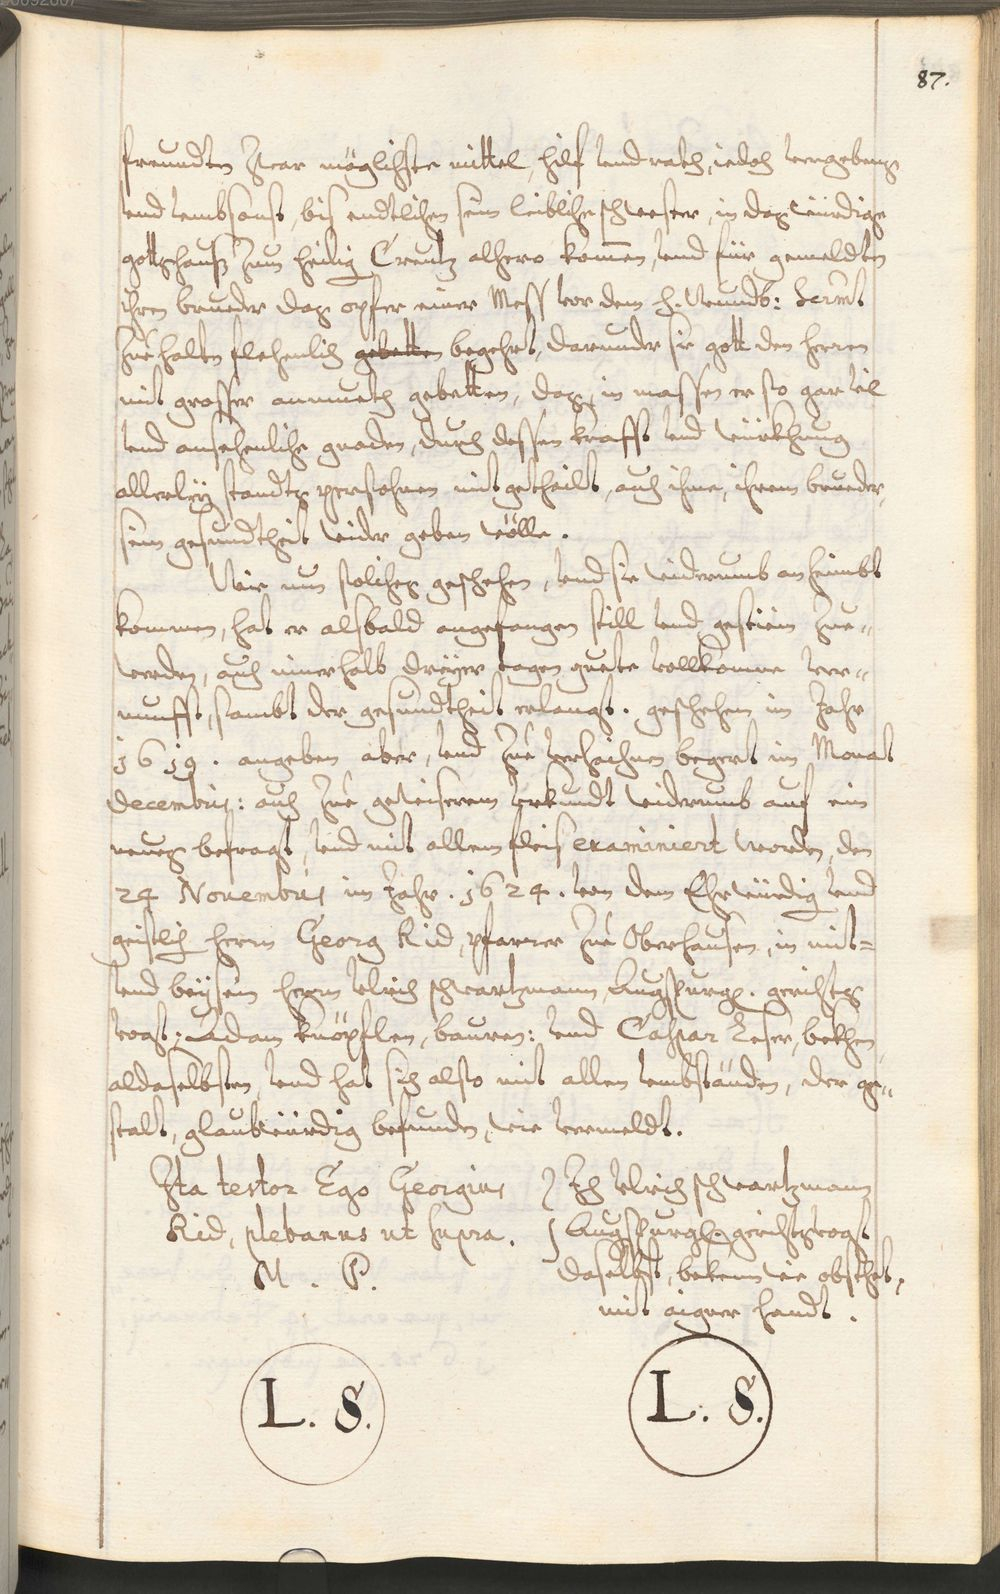 87.
freundten Zwar möglichste mittel, hilf vnd rath, iedoch vergebens
vnd vmbsonst, bis endtlichen sein leibliche schwester, in das würdige
gottshauß zum heilig Creutz alhero kommen, vnd für gemeldten
ihren brueder das opfer einer Mess vor dem h. Wundb: Sacrmt
Zue halten flehenlich gebetten begehrt, darunder sie gott den herren
mit grosser anmueth gebetten, das, in massen er so gar vil
vnd ansehenliche gnaden, durch dessen krafft vnd würkhung
allerleÿ standts persohnen mitgetheilt, auch ihme, ihrem brueder,
sein gesundtheit wider geben wölle.
Wie nun solches geschehen, vnd sie widerumb anheimbs
kommen, hat er alsbald angefangen still vnd gestüm Zue-
werden, auch innerhalb dreÿer tagen guete vollkomne ver-
nunfft, sambt der gesundtheit erlangt. geschehen im Jahr
1619. angeben aber, vnd Zue verzaichnen begert im Monat
Decembris: auch Zue gewiserem vrkundt widerumb auf ein
neues befragt, vnd mit allem fleis examiniert worden, den
24 Nouembris im Jahr. 1624. von dem Ehrwürdig vnd
geistlich herrn Georg Rid, pfarrer Zue Oberhausen, in mit-
vnd beÿsein herrn Vlrich schwartzmann, Augspurg. gerichts
vogt: Adam knöpflen, bauren: vnd Caspar Leser, bekhen
aldaselbsten, vnd hat sich also mit allen vmbständen, der ge-
stalt, glaubwürdig befunden, wie vermeldt.
Ita testor Ego Georgius
Rid, plebanus ut supra.
M. P.
Ich Vlrich schwartzmann
Augspurg. gerichtsvogt
daselbst, bekenn wie obsthet,
mit aigner handt.
L. S.
L. S.